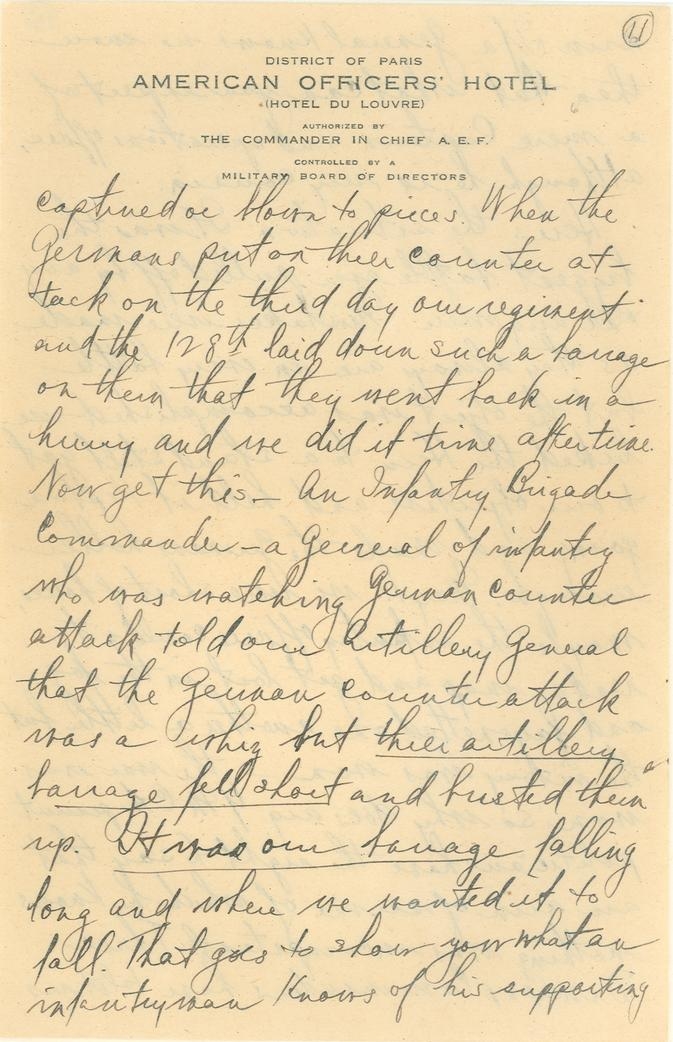 11
DISTRICT OF PARIS
AMERICAN OFFICERS' HOTEL
(HOTEL DU LOUVRE)
AUTHORIZED BY
THE COMMANDER IN CHIEF A. E. F.
CONTROLLED BY A
MILITARY BOARD OF DIRECTORS
captured or blown to pieces. When the
Germans put on their counter at-
tack on the third day our regiment
and the 128th laid down such a barrage
on them that they went back in a
hurry and we did it time after time.
Now get this - An Infantry Brigade
Commander - a General of infantry
who was watching German counter
attack told our Artillery General
that the German counter attack
was a whiz but their artillery
barrage fell short and busted them
up. It was our barrage falling
long and where we wanted it to
fall. That goes to show you what an
infantryman knows of his supporting